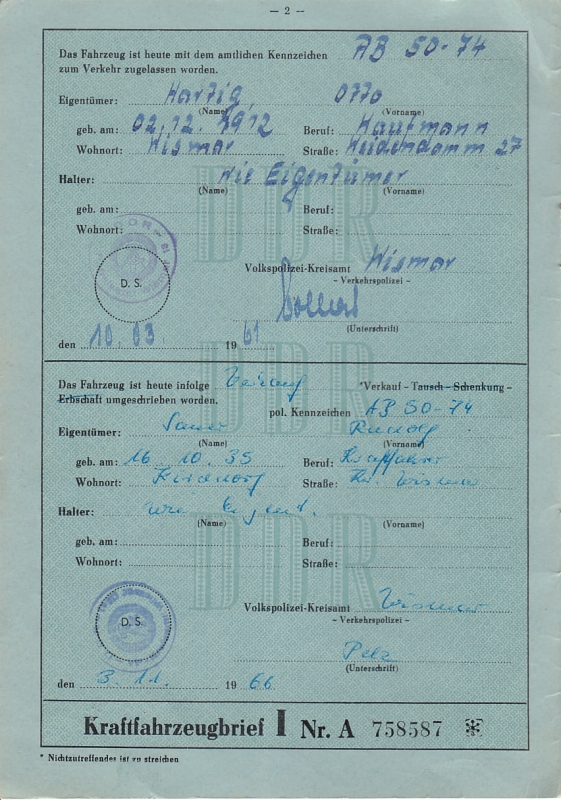 — 2 —
Das Fahrzeug ist heute mit dem amtlichen Kennzeichen AB 50-74
zum Verkehr zugelassen worden.
Eigentümer: Hartig, Otto
(Name) (Vorname)
geb. am: 02.12.1912 Beruf: Kaufmann
Wohnort: Wismar Straße: Weidendamm 27
Halter: wie Eigentümer
(Name) (Vorname)
geb. am: Beruf:
Wohnort: Straße:
D. S.
Volkspolizei-Kreisamt Wismar
– Verkehrspolizei –
(Unterschrift)
den 10.03. 1961
DDR
Das Fahrzeug ist heute infolge *Verkauf – Tausch – Schenkung –
Erbschaft umgeschrieben worden.
pol. Kennzeichen AB 50-74
Eigentümer: Rudolf
(Name) (Vorname)
geb. am: 16.10.35 Beruf: Kraftfahrer
Wohnort: Kirchdorf Straße: Kr. Wismar
Halter: wie Eigent.
(Name) (Vorname)
geb. am: Beruf:
Wohnort: Straße:
DDR
D. S.
Volkspolizei-Kreisamt Wismar
– Verkehrspolizei –
Pelz
(Unterschrift)
den 3.11. 1966
DDR
Kraftfahrzeugbrief I Nr. A 758587 *
* Nichtzutreffendes ist zu streichen